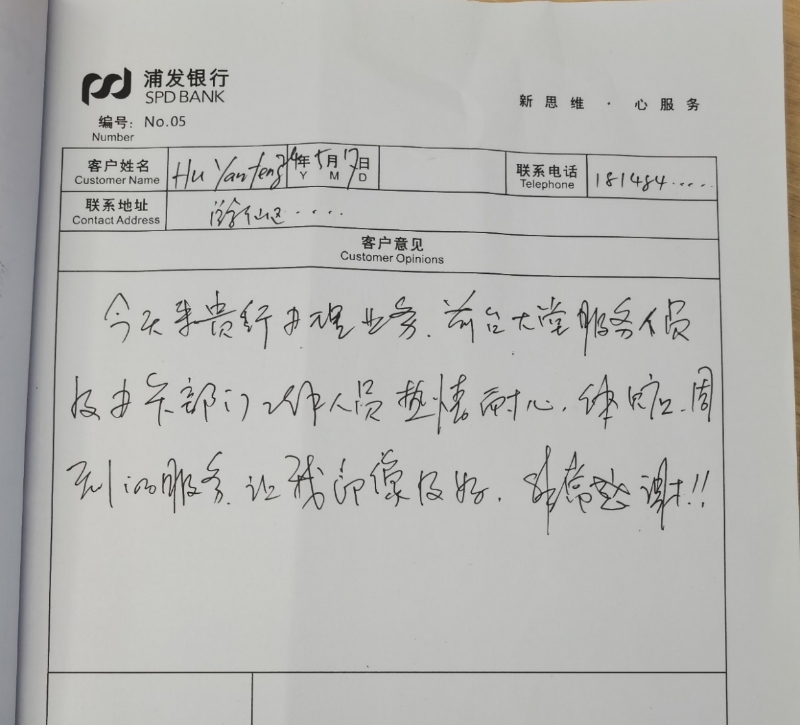 浦发银行
SPD BANK
新思维 · 心服务
编号: No.05
Number
客户姓名 Hu Yanteng 4年5月17日 联系电话 181484.....
Customer Name Y M D Telephone
联系地址 涪仙区....
Contact Address
客户意见
Customer Opinions
今天来贵行办理业务、前台大堂服务人员
及办公部门工作人员热情耐心,体贴、周
到的服务、让我印像极好,非常感谢!!